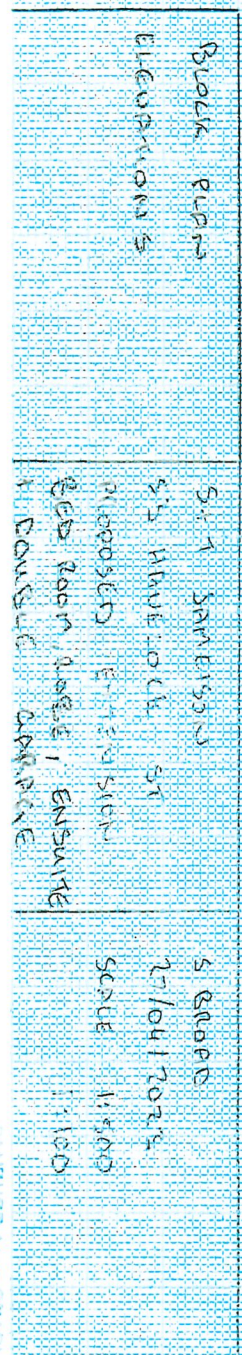 BLOCK PLAN
ELEVATIONS
S + T JAMEISON
HAVELOCK ST
PROPOSED EXTENSION
BED ROOM, ROBE, ENSUITE
+ DOUBLE GARAGE
S BROAD
27/04/2022
SCALE 1:500
1:100